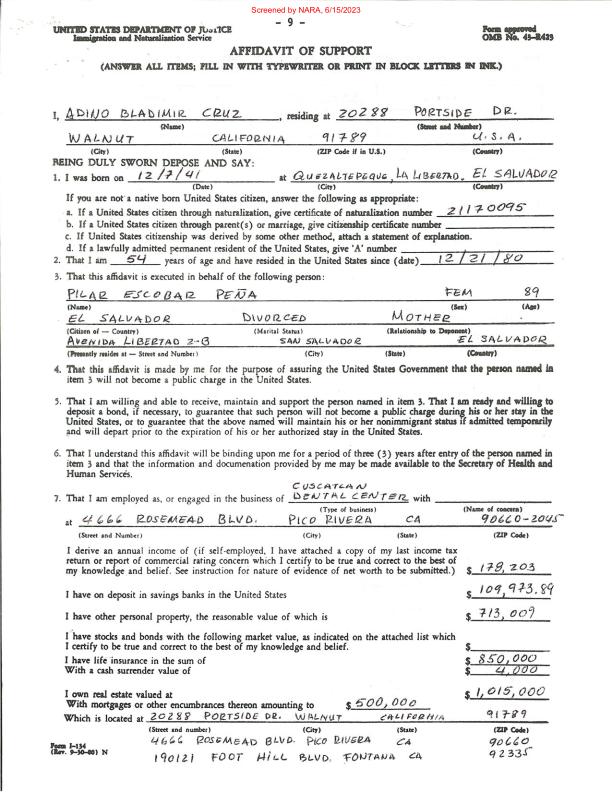 Screened by NARA, 6/15/2023
- 9 -
UNITED STATES DEPARTMENT OF JUSTICE
Immigration and Naturalization Service
Form approved
OMB No. 43-R423
AFFIDAVIT OF SUPPORT
(ANSWER ALL ITEMS; FILL IN WITH TYPEWRITER OR PRINT IN BLOCK LETTERS IN INK.)
I, ADINO BLADIMIR CRUZ, residing at 20288 PORTSIDE DR.
(Name) (Street and Number)
WALNUT CALIFORNIA 91789 U.S.A.
(City) (State) (ZIP Code if in U.S.) (Country)
BEING DULY SWORN DEPOSE AND SAY:
1. I was born on 12/7/41 at QUEZALTEPEQUE, LA LIBERTAD, EL SALVADOR
(Date) (City) (Country)
If you are not a native born United States citizen, answer the following as appropriate:
a. If a United States citizen through naturalization, give certificate of naturalization number 21170095
b. If a United States citizen through parent(s) or marriage, give citizenship certificate number
c. If United States citizenship was derived by some other method, attach a statement of explanation.
d. If a lawfully admitted permanent resident of the United States, give 'A' number
2. That I am 54 years of age and have resided in the United States since (date) 12/21/80
3. That this affidavit is executed in behalf of the following person:
PILAR ESCOBAR PEÑA FEM 89
(Name) (Sex) (Age)
EL SALVADOR DIVORCED MOTHER
(Citizen of — Country) (Marital Status) (Relationship to Deponent)
AVENIDA LIBERTAD 2-B SAN SALVADOR EL SALVADOR
(Presently resides at — Street and Number) (City) (State) (Country)
4. That this affidavit is made by me for the purpose of assuring the United States Government that the person named in
item 3 will not become a public charge in the United States.
5. That I am willing and able to receive, maintain and support the person named in item 3. That I am ready and willing to
deposit a bond, if necessary, to guarantee that such person will not become a public charge during his or her stay in the
United States, or to guarantee that the above named will maintain his or her nonimmigrant status if admitted temporarily
and will depart prior to the expiration of his or her authorized stay in the United States.
6. That I understand this affidavit will be binding upon me for a period of three (3) years after entry of the person named in
item 3 and that the information and documenation provided by me may be made available to the Secretary of Health and
Human Services.
CUSCATLAN
7. That I am employed as, or engaged in the business of DENTAL CENTER with
(Type of business) (Name of concern)
at 4666 ROSEMEAD BLVD. PICO RIVERA CA 90660-2045
(Street and Number) (City) (State) (ZIP Code)
I derive an annual income of (if self-employed, I have attached a copy of my last income tax
return or report of commercial rating concern which I certify to be true and correct to the best of
my knowledge and belief. See instruction for nature of evidence of net worth to be submitted.) $ 178,203
I have on deposit in savings banks in the United States $ 109,973.89
I have other personal property, the reasonable value of which is $ 713,009
I have stocks and bonds with the following market value, as indicated on the attached list which
I certify to be true and correct to the best of my knowledge and belief. $
I have life insurance in the sum of $ 850,000
With a cash surrender value of $ 4,000
I own real estate valued at $ 1,015,000
With mortgages or other encumbrances thereon amounting to $ 500,000
Which is located at 20288 PORTSIDE DR. WALNUT CALIFORNIA 91789
(Street and number) (City) (State) (ZIP Code)
4666 ROSEMEAD BLVD. PICO RIVERA CA 90660
Form I-134
(Rev. 9-30-80) N
190121 FOOT HILL BLVD. FONTANA CA 92335